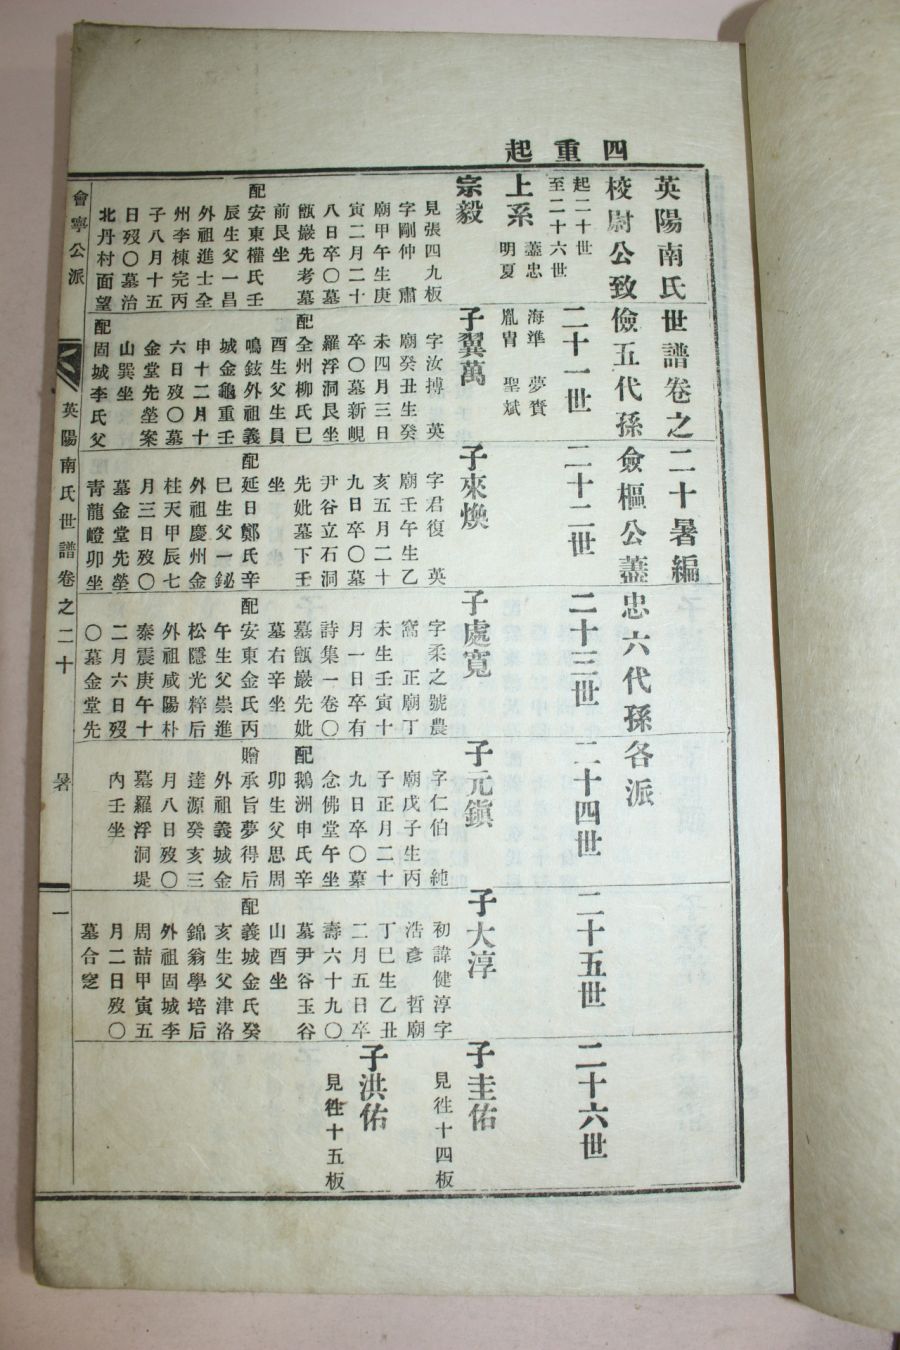 四重起
英陽南氏世譜卷之二十暑編
校尉公致儉五代孫僉樞公藎忠六代孫各派
起二十世
至二十六世
二十一世
二十二世
二十三世
二十四世
二十五世
二十六世
上系
藎忠
明夏
海準 夢賚
胤冑 聖斌
宗毅
見張四九板
字剛仲 肅
廟甲午生庚
寅二月二十
八日卒〇墓
甑巖先考墓
前艮坐
配安東權氏壬
辰生父一昌
外祖進士全
州李棟完丙
子八月十五
日歿〇墓治
北丹村面望
子翼萬
字汝搏 英
廟癸丑生癸
未四月三日
卒〇墓新峴
羅浮洞艮坐
配全州柳氏巳
酉生父生員
鳴鉉外祖義
城金龜重壬
申十二月十
六日歿〇墓
金堂先塋案
山巽坐
配固城李氏父
子來煥
字君復 英
廟壬午生乙
亥五月二十
九日卒〇墓
尹谷立石洞
先妣墓下壬
坐
配延日鄭氏辛
巳生父一鉍
外祖慶州金
柱天甲辰七
月三日歿〇
墓金堂先塋
靑龍嶝卯坐
子處寬
字柔之號農
窩 正廟丁
未生壬寅十
月一日卒有
詩集一卷〇
墓甑巖先妣
墓右辛坐
配安東金氏丙
午生父崇進
松隱光粹后
外祖咸陽朴
泰震庚午十
二月六日歿
〇墓金堂先
子元鎭
字仁伯 純
廟戊子生丙
子正月二十
九日卒〇墓
念佛堂午坐
配鵝洲申氏辛
卯生父思周
贈承旨夢得后
外祖義城金
逹源癸亥三
月八日歿〇
墓羅浮洞堤
內壬坐
子大淳
初諱健淳字
浩彥 哲廟
丁巳生乙丑
二月五日卒
壽六十九〇
墓尹谷玉谷
山酉坐
配義城金氏癸
亥生父津洛
錦翁學培后
外祖固城李
周喆甲寅五
月二日歿〇
墓合窆
子圭佑
見徃十四板
子洪佑
見徃十五板
會寧公派
英陽南氏世譜卷之二十
暑
一